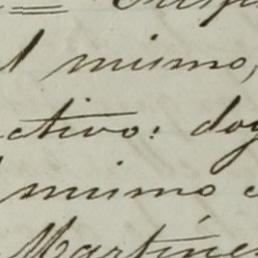 l mismo,
ctivo: do
l mismo
Martine